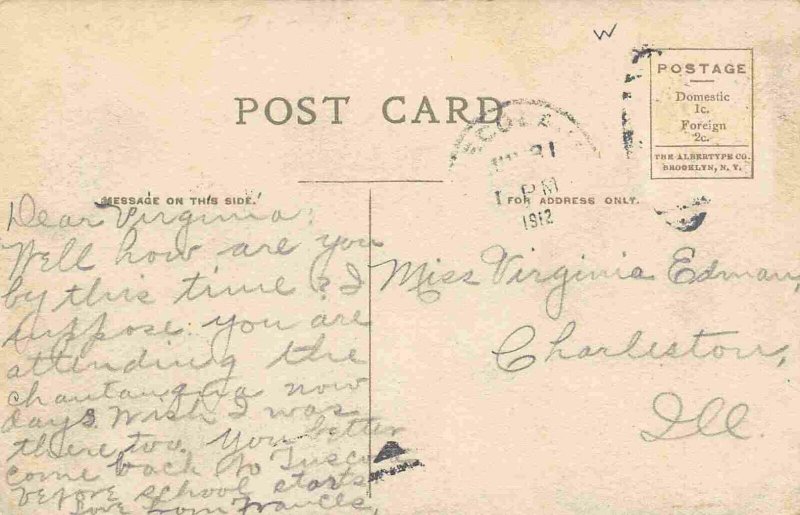 W
POST CARD
POSTAGE
Domestic
1c.
Foreign
2c.
THE ALBERTYPE CO.
BROOKLYN, N. Y.
31
1 PM
1912
MESSAGE ON THIS SIDE.
FOR ADDRESS ONLY.
Dear Virginia:
Well how are you
by this time? I
suppose you are
attending the
chautauqua now
days. Wish I was
there, too. You better
come back to Tuscola
before school starts
Love from Frances,
Miss Virginia Edman,
Charleston,
Ill.